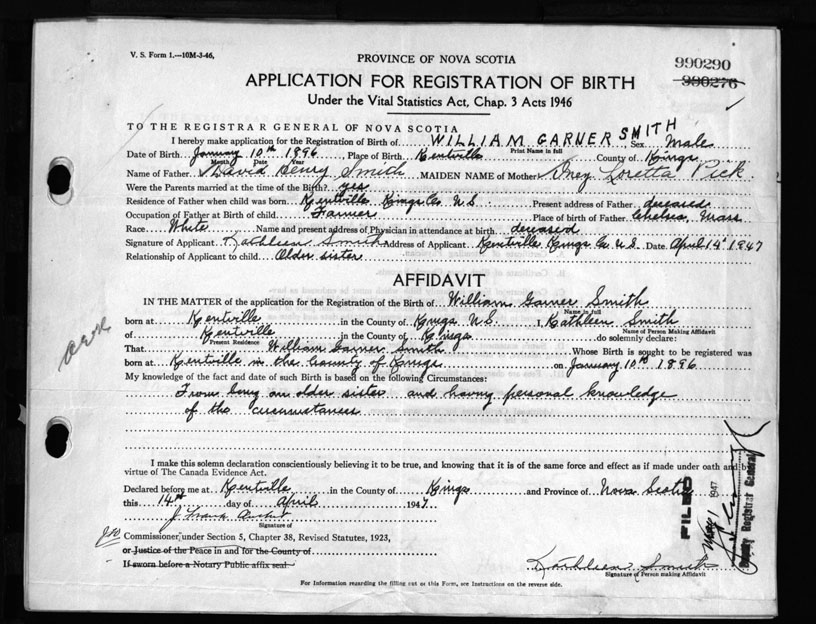 V. S. Form 1.—10M-3-46,
PROVINCE OF NOVA SCOTIA
990290
990276
APPLICATION FOR REGISTRATION OF BIRTH
Under the Vital Statistics Act, Chap. 3 Acts 1946
TO THE REGISTRAR GENERAL OF NOVA SCOTIA
I hereby make application for the Registration of Birth of WILLIAM GARNER SMITH Sex Male
Print Name in full
Date of Birth January 10th 1896 Place of Birth Kentville County of Kings
Month Date Year
Name of Father David Henry Smith MAIDEN NAME of Mother Inez Loretta Pick
Were the Parents married at the time of the Birth? yes
Residence of Father when child was born Kentville Kings Co. N.S. Present address of Father deceased
Occupation of Father at Birth of child Farmer Place of birth of Father Chelsea, Mass
Race White Name and present address of Physician in attendance at birth deceased
Signature of Applicant Kathleen Smith Address of Applicant Kentville Kings Co. N.S. Date April 14 1947
Relationship of Applicant to child Older sister
AFFIDAVIT
IN THE MATTER of the application for the Registration of the Birth of William Garner Smith
Name in full
born at Kentville in the County of Kings N.S. I, Kathleen Smith
Name of Person Making Affidavit
of Kentville in the County of Kings do solemnly declare:
Present Residence
That William Garner Smith Whose Birth is sought to be registered was
born at Kentville in the County of Kings on January 10th 1896
My knowledge of the fact and date of such Birth is based on the following Circumstances:
From being an older sister and having personal knowledge
of the circumstances
I make this solemn declaration conscientiously believing it to be true, and knowing that it is of the same force and effect as if made under oath and by
virtue of The Canada Evidence Act.
Declared before me at Kentville in the County of Kings and Province of Nova Scotia
this 14th day of April 1947
Signature of
Commissioner, under Section 5, Chapter 38, Revised Statutes, 1923,
or Justice of the Peace in and for the County of
If sworn before a Notary Public affix seal
Kathleen Smith
Signature of Person making Affidavit
FILED
May 1 1947
Deputy Registrar General
For Information regarding the filling out of this Form, see Instructions on the reverse side.